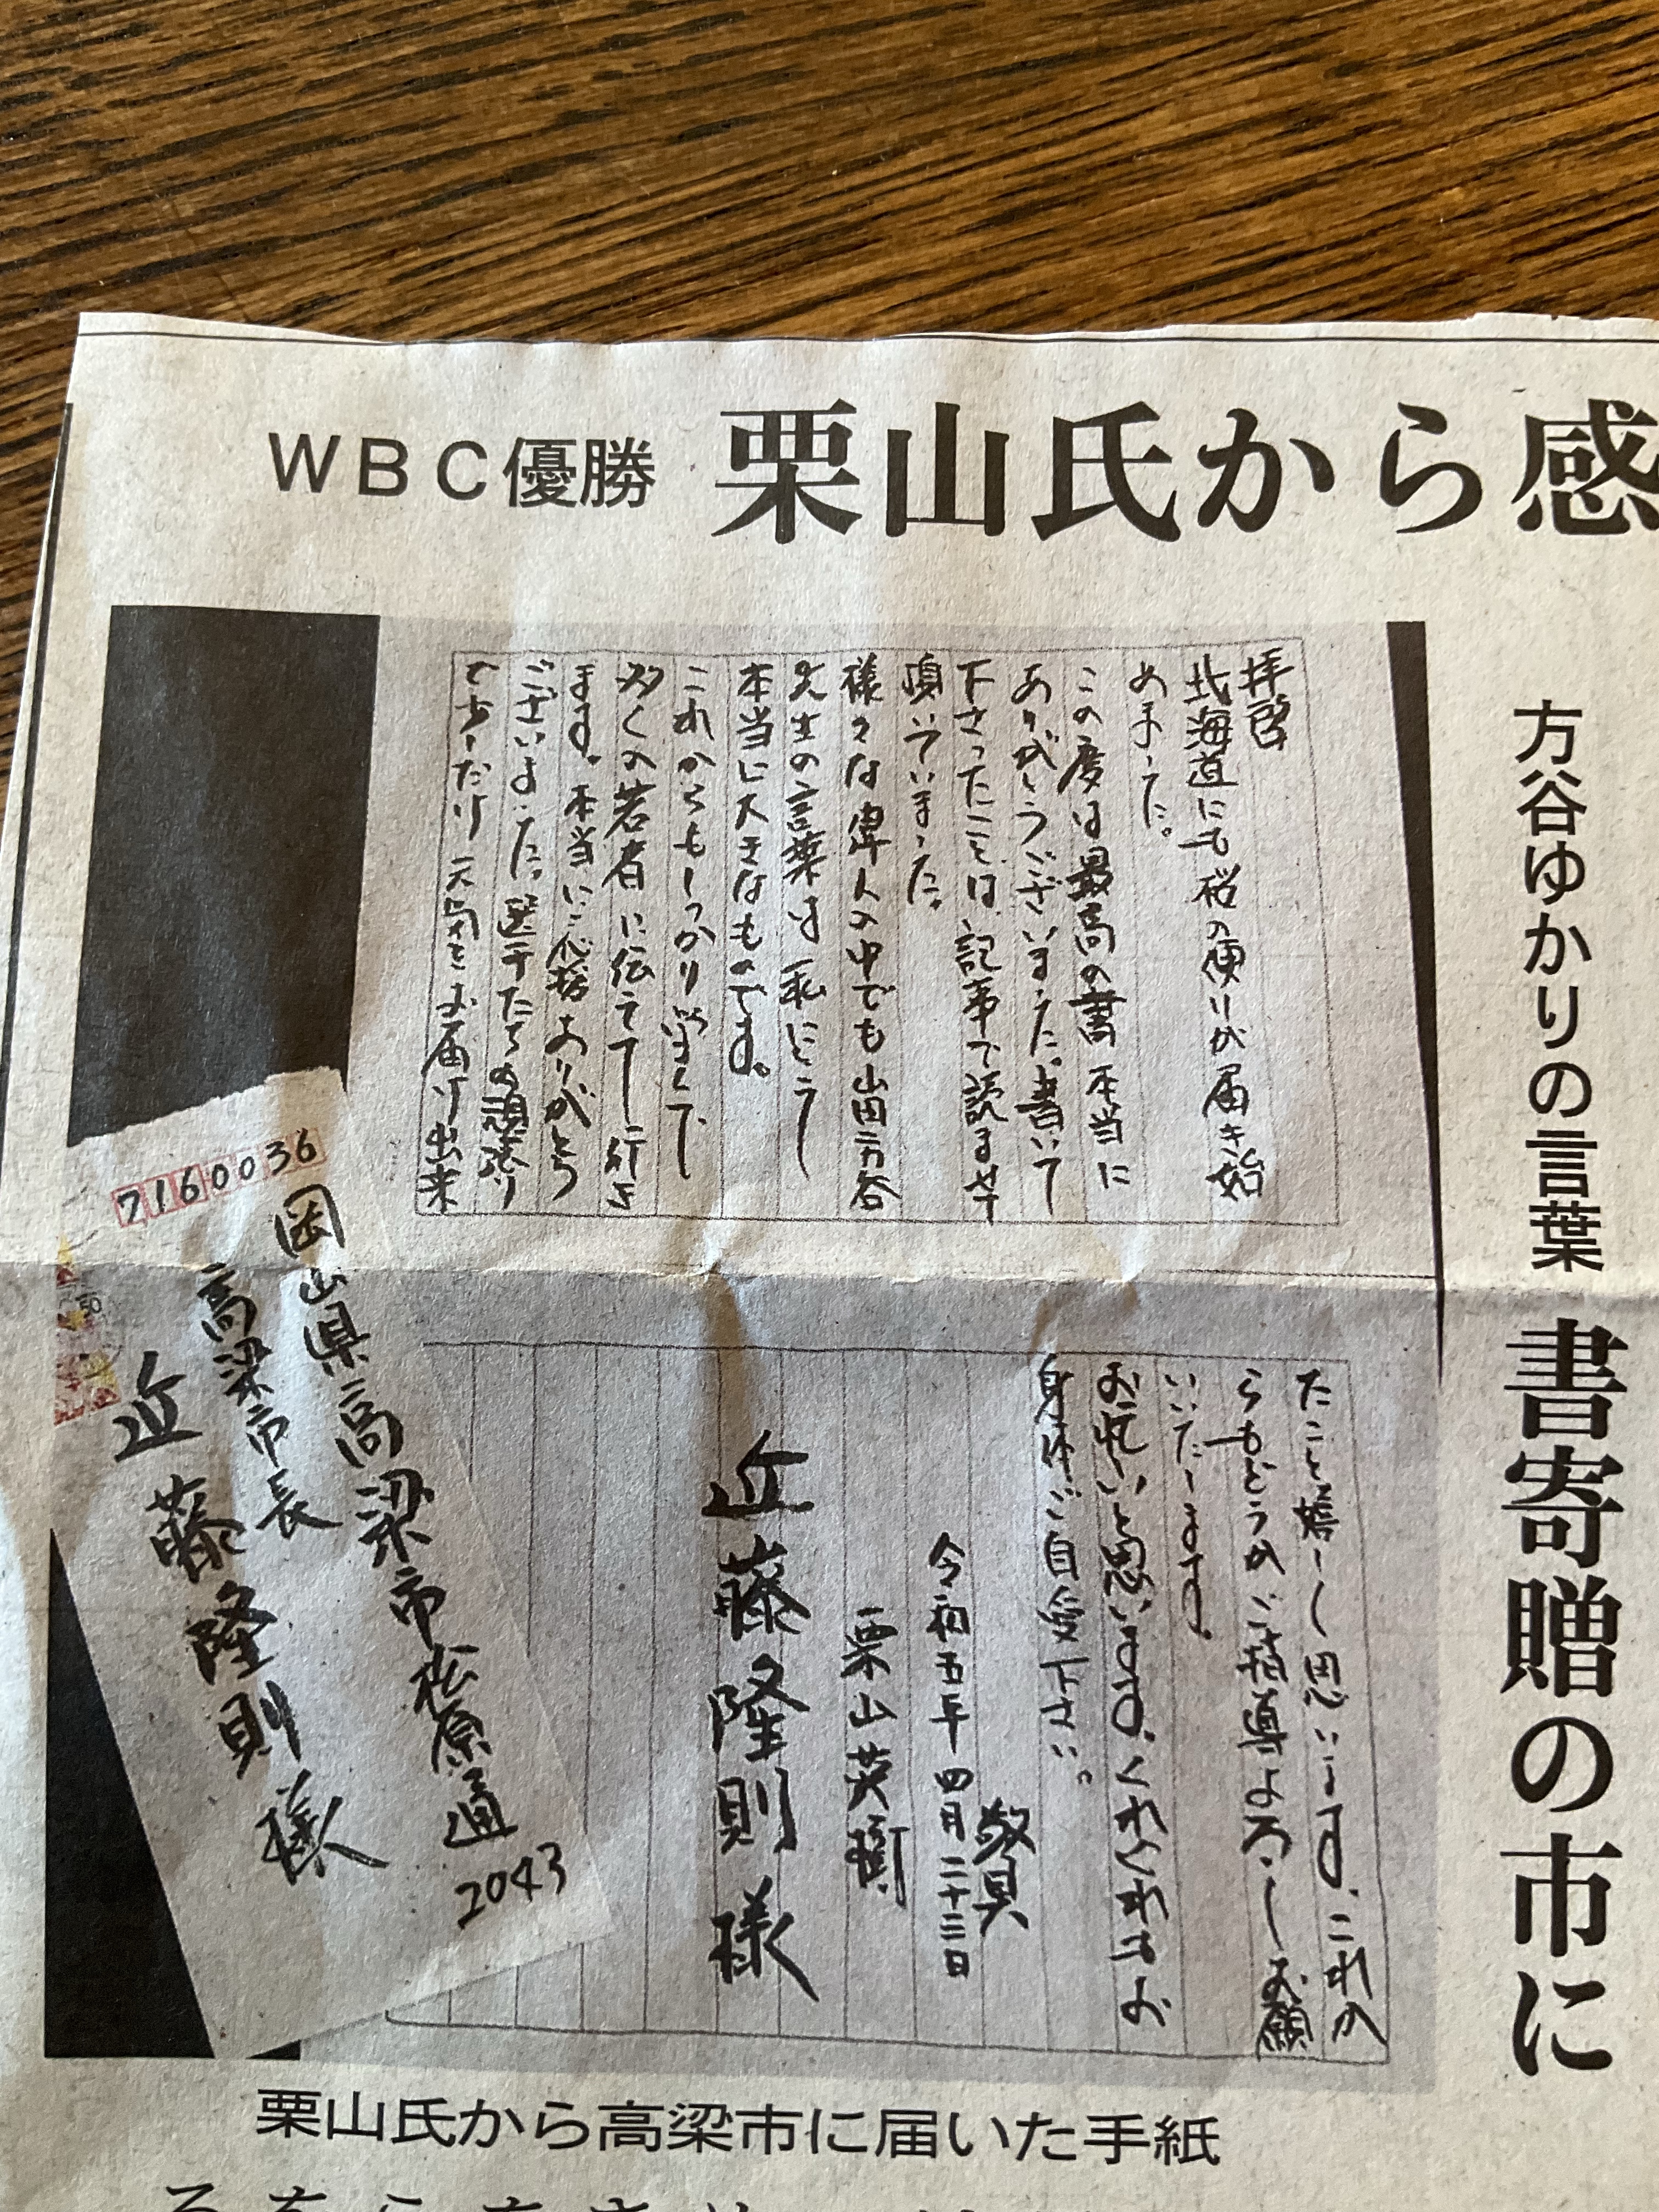 WBC優勝
栗山氏から感
方谷ゆかりの言葉
書寄贈の市に
拝啓
北海道にも桜の便りが届き始
めました。
この度は最高の書本当に
ありがとうございました。書いて
下さったことは、記事で読ませ
頂いていました。
様々な偉人の中でも山田方谷
先生の言葉は私にとって
本当に大きなものです。
これからもしっかり学んで
多くの若者に伝えて行き
ます。本当にご応援ありがとう
ございました。選手たちの頑張り
で少しだけ元気をお届け出来
たこと嬉しく思います。これか
らもどうかご指導よろしくお願
いいたします。
お忙しいと思います。くれぐれもお
身体ご自愛下さい。
敬具
令和五年四月二十三日
栗山英樹
近藤隆則様
7160036
岡山県高梁市松原通
2043
高梁市長
近藤隆則様
50
栗山氏から高梁市に届いた手紙